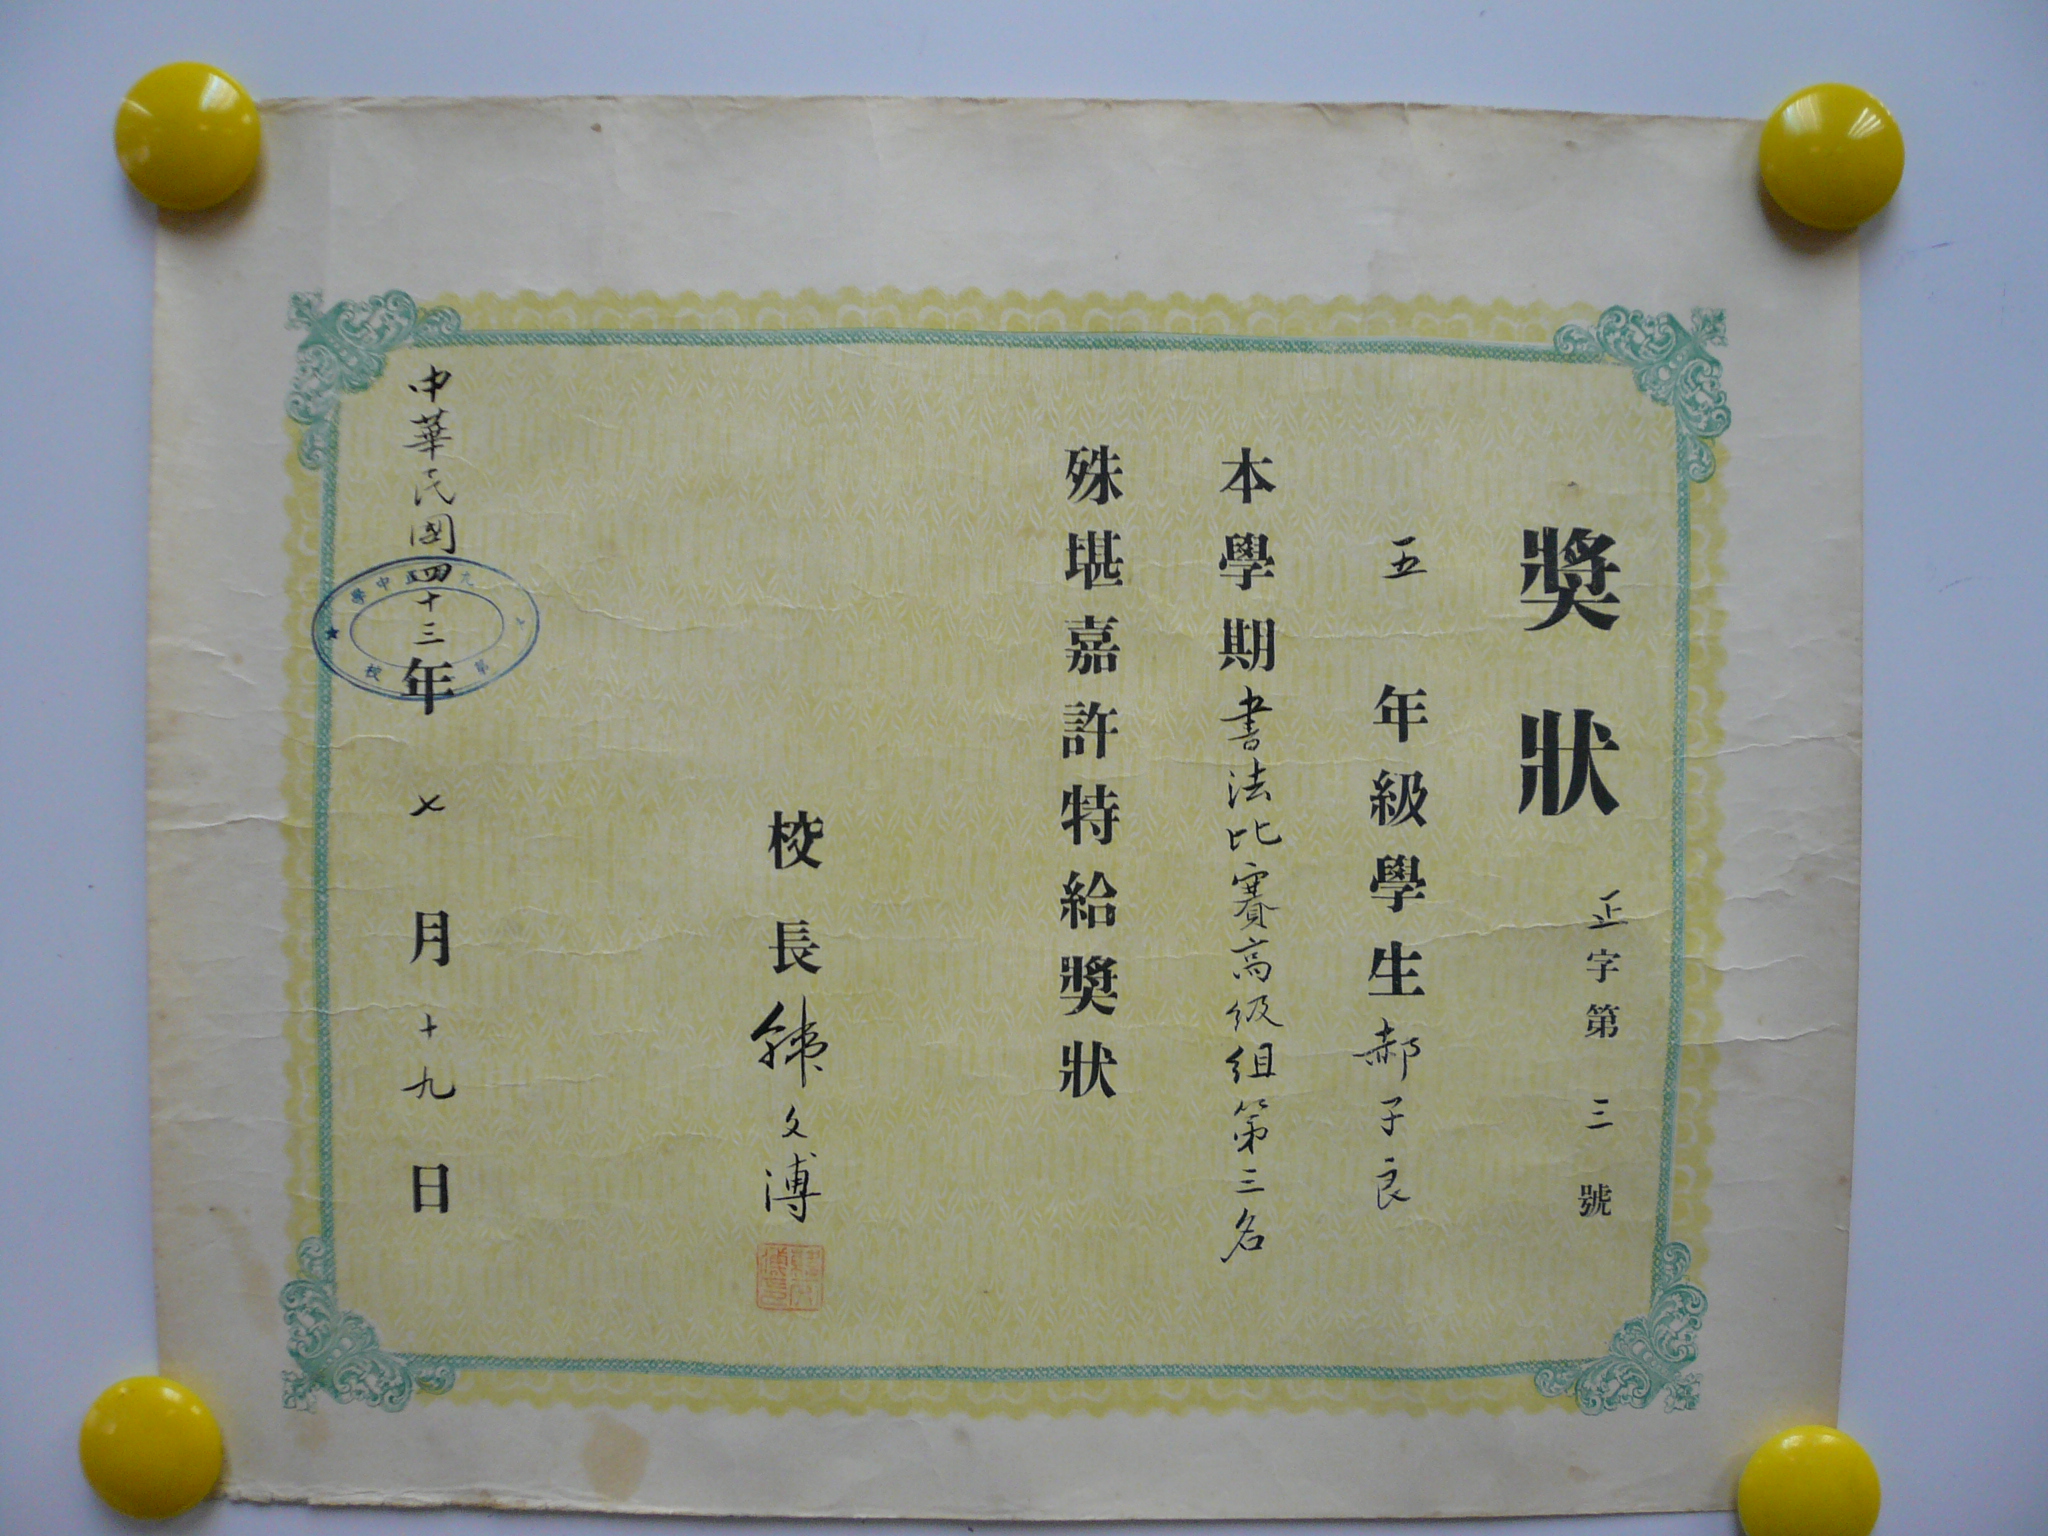 獎狀
正字第三號
五年級學生郝子良
本學期書法比賽高級組第三名
殊堪嘉許特給獎狀
校長韓文溥
中華民國四十三年七月十九日